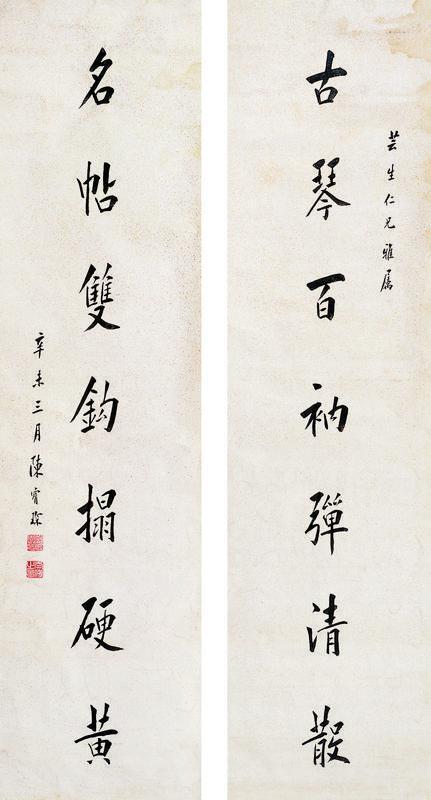 芸生仁兄雅属
古琴百衲彈清散
名帖雙鈎搨硬黄
辛未三月陳琛